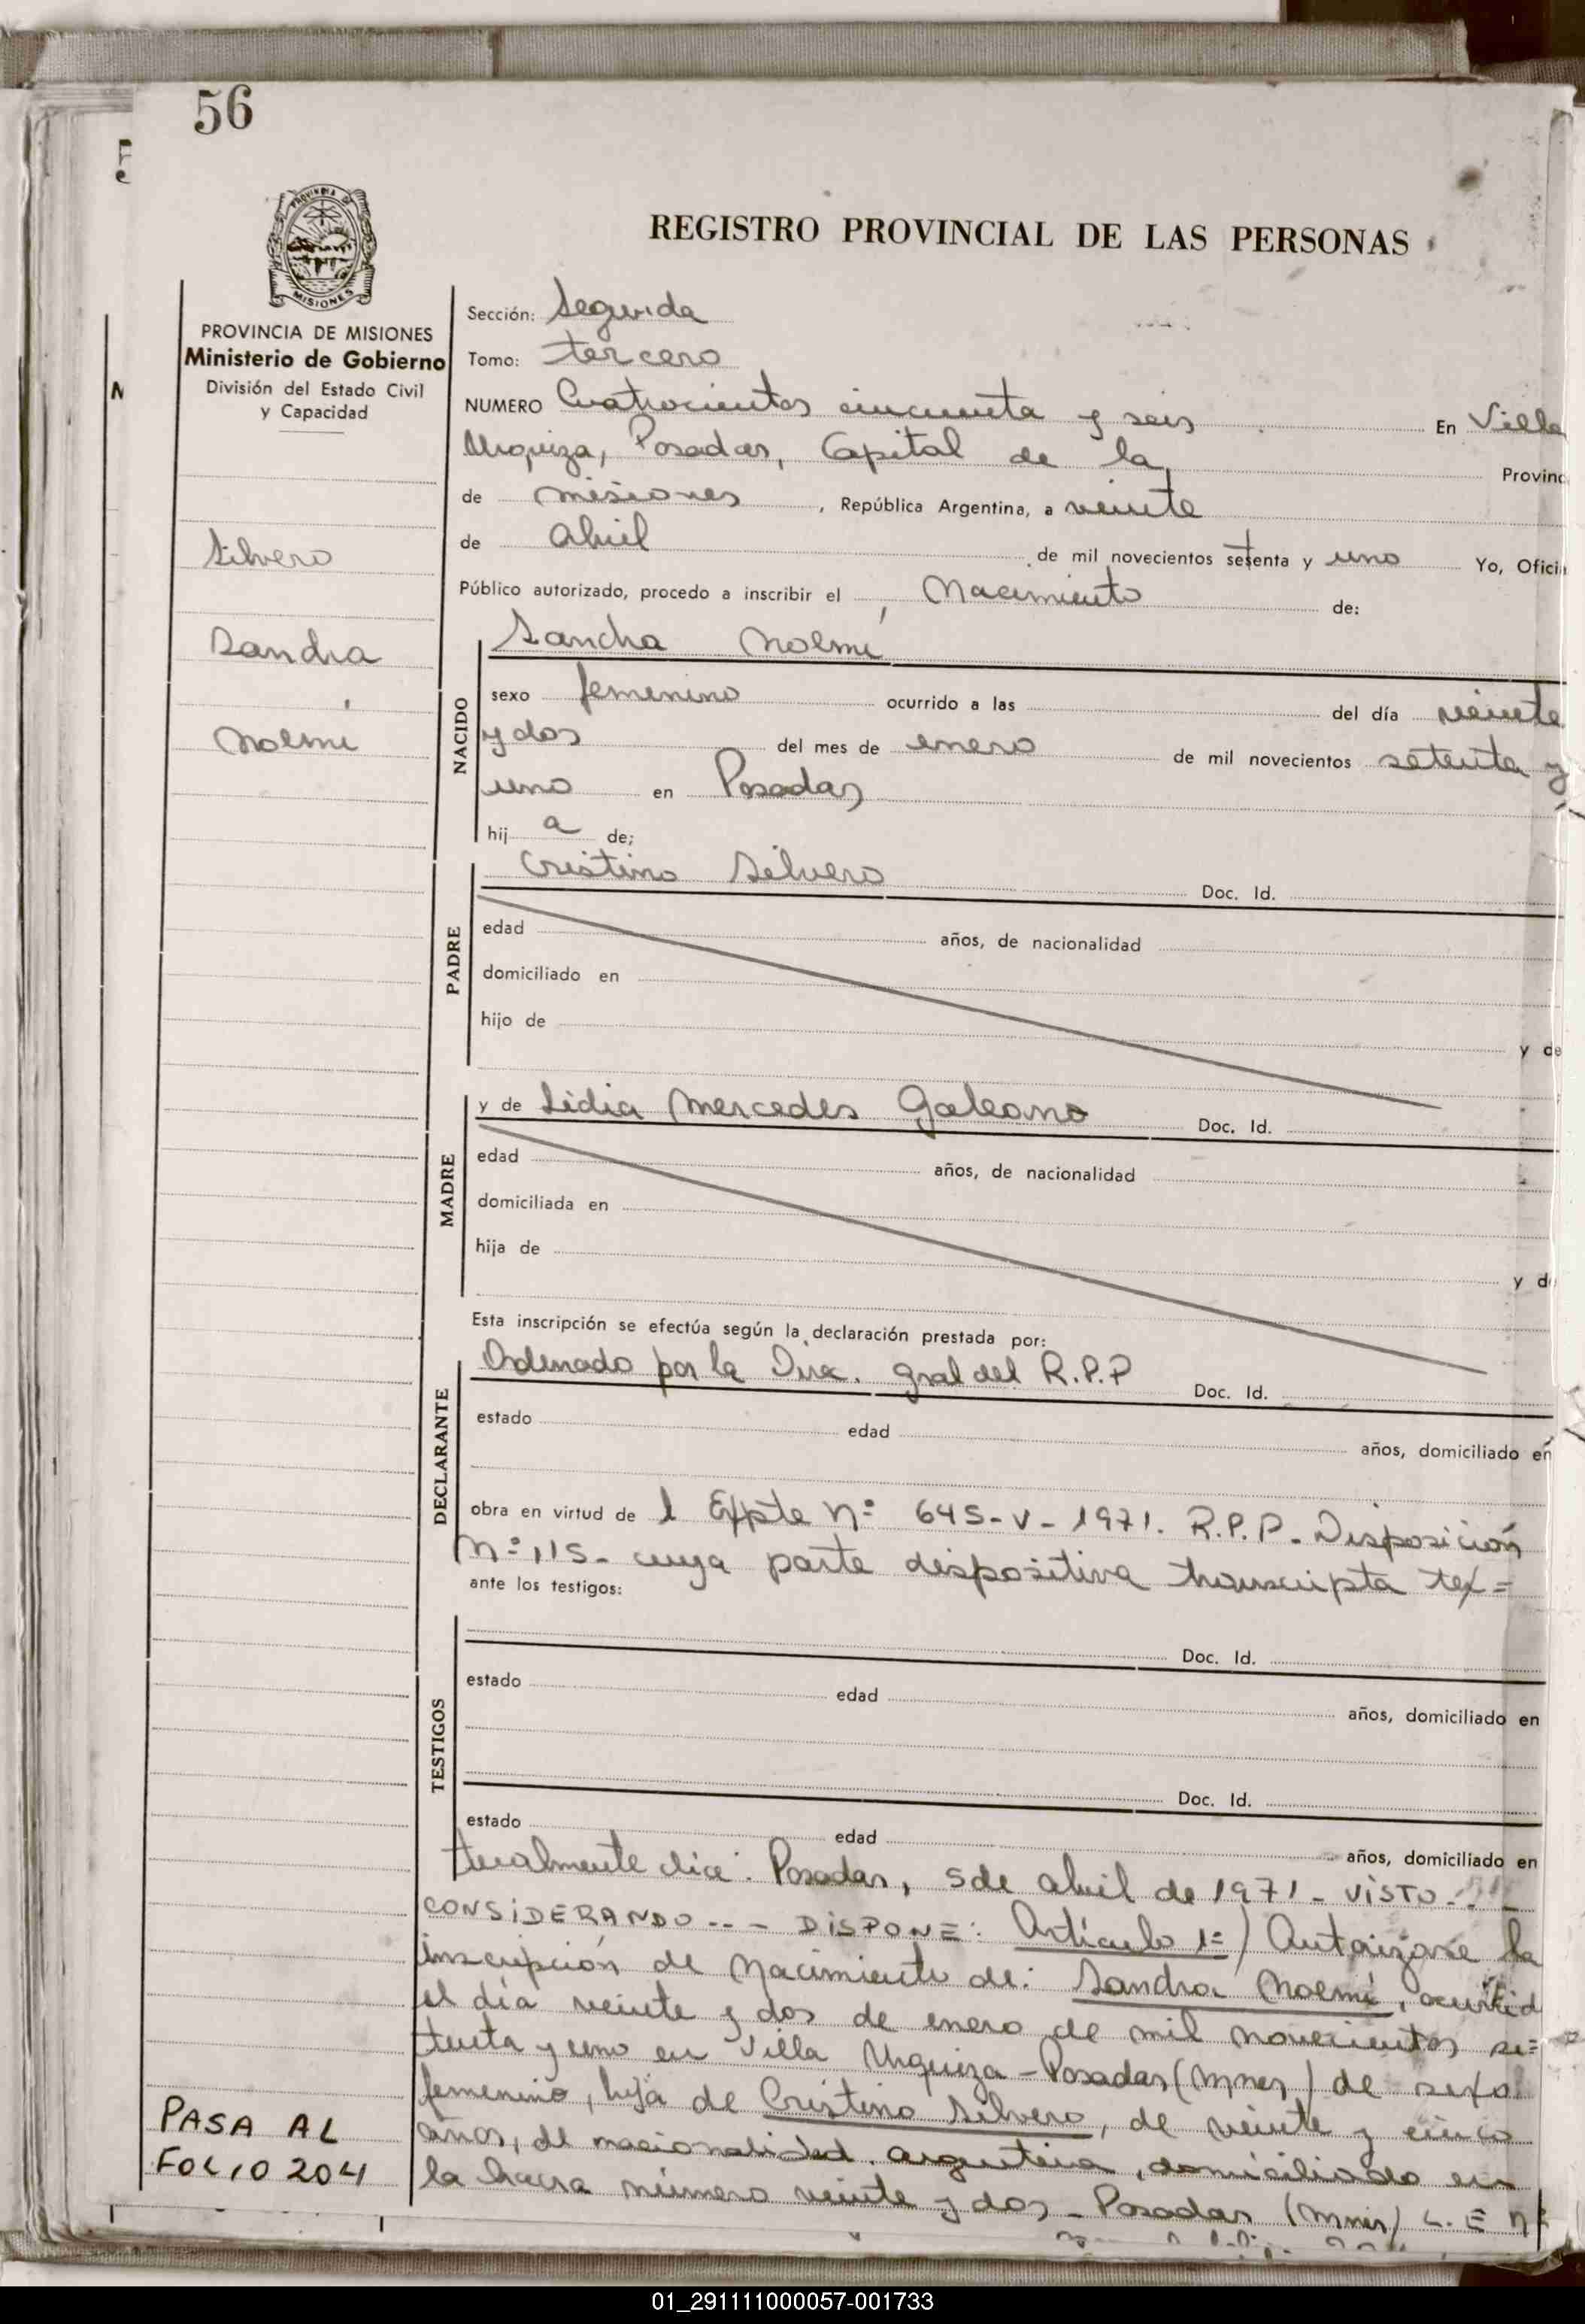 56
REGISTRO PROVINCIAL DE LAS PERSONAS
PROVINCIA DE MISIONES
MISIONES
PROVINCIA DE MISIONES
Ministerio de Gobierno
División del Estado Civil
y Capacidad
Silvero
Sandra
Noemí
Sección: Segunda
Tomo: tercero
NUMERO Cuatrocientos cincuenta y seis En Villa
Urquiza, Posadas, Capital de la Provinc
de misiones, República Argentina, a veinte
de abril de mil novecientos setenta y uno Yo, Ofici
Público autorizado, procedo a inscribir el Nacimiento de:
NACIDO
Sandra Noemí
sexo femenino ocurrido a las del día veinte
y dos del mes de enero de mil novecientos setenta y
uno en Posadas
hij a de;
PADRE
Cristino Silvero Doc. Id.
edad años, de nacionalidad
domiciliado en
hijo de
y de
MADRE
y de Lidia Mercedes Galeano Doc. Id.
edad años, de nacionalidad
domiciliada en
hija de
y d
Esta inscripción se efectúa según la declaración prestada por:
DECLARANTE
Ordenado por la Dirc. gral del R.P.P Doc. Id.
estado edad años, domiciliado en
obra en virtud de l Expte Nº 645-V-1971. R.P.P. Disposición
Nº 115- cuya parte dispositiva transcripta tex=
ante los testigos:
TESTIGOS
Doc. Id.
estado edad años, domiciliado en
Doc. Id.
estado edad años, domiciliado en
tualmente dice: Posadas, 5 de abril de 1971 - VISTO - - -
CONSIDERANDO - - - DISPONE: Artículo 1º) Autorízase la
inscripción de Nacimiento de: Sandra Noemí, ocurrid
el día veinte y dos de enero de mil novecientos se=
tenta y uno en Villa Urquiza - Posadas (Mnes) de sexo
femenino, hija de Cristino Silvero, de veinte y cinco
años, de nacionalidad argentina, domiciliado en
la chacra número veinte y dos - Posadas (Mnes) L. E Nº
PASA AL
FOLIO 204
01_291111000057-001733